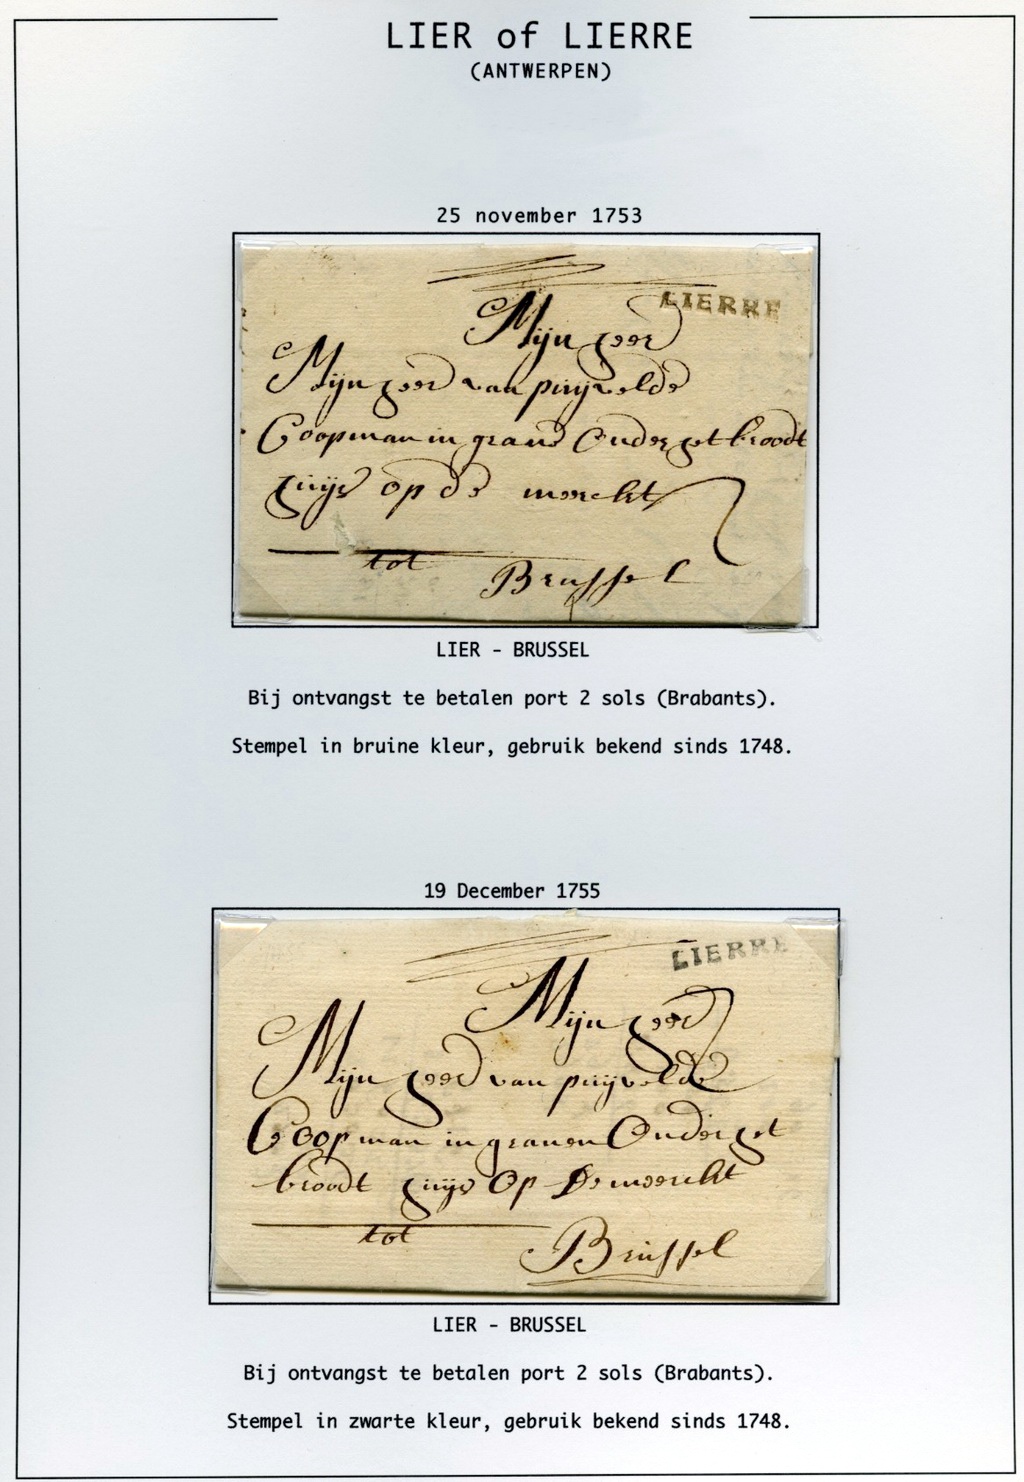 LIER of LIERRE
(ANTWERPEN)
25 november 1753
LIERRE
Mijn heer
Mijn heer van puijvelde
Coopman in graus Onder het broodt
huijs op de merckt
tot Brussel
LIER - BRUSSEL
Bij ontvangst te betalen port 2 sols (Brabants).
Stempel in bruine kleur, gebruik bekend sinds 1748.
19 December 1755
LIERRE
Mijn heer
Mijn heer van puijvelde
Coopman in granen Onder het
broodt huijs Op De merckt
tot Brussel
LIER - BRUSSEL
Bij ontvangst te betalen port 2 sols (Brabants).
Stempel in zwarte kleur, gebruik bekend sinds 1748.